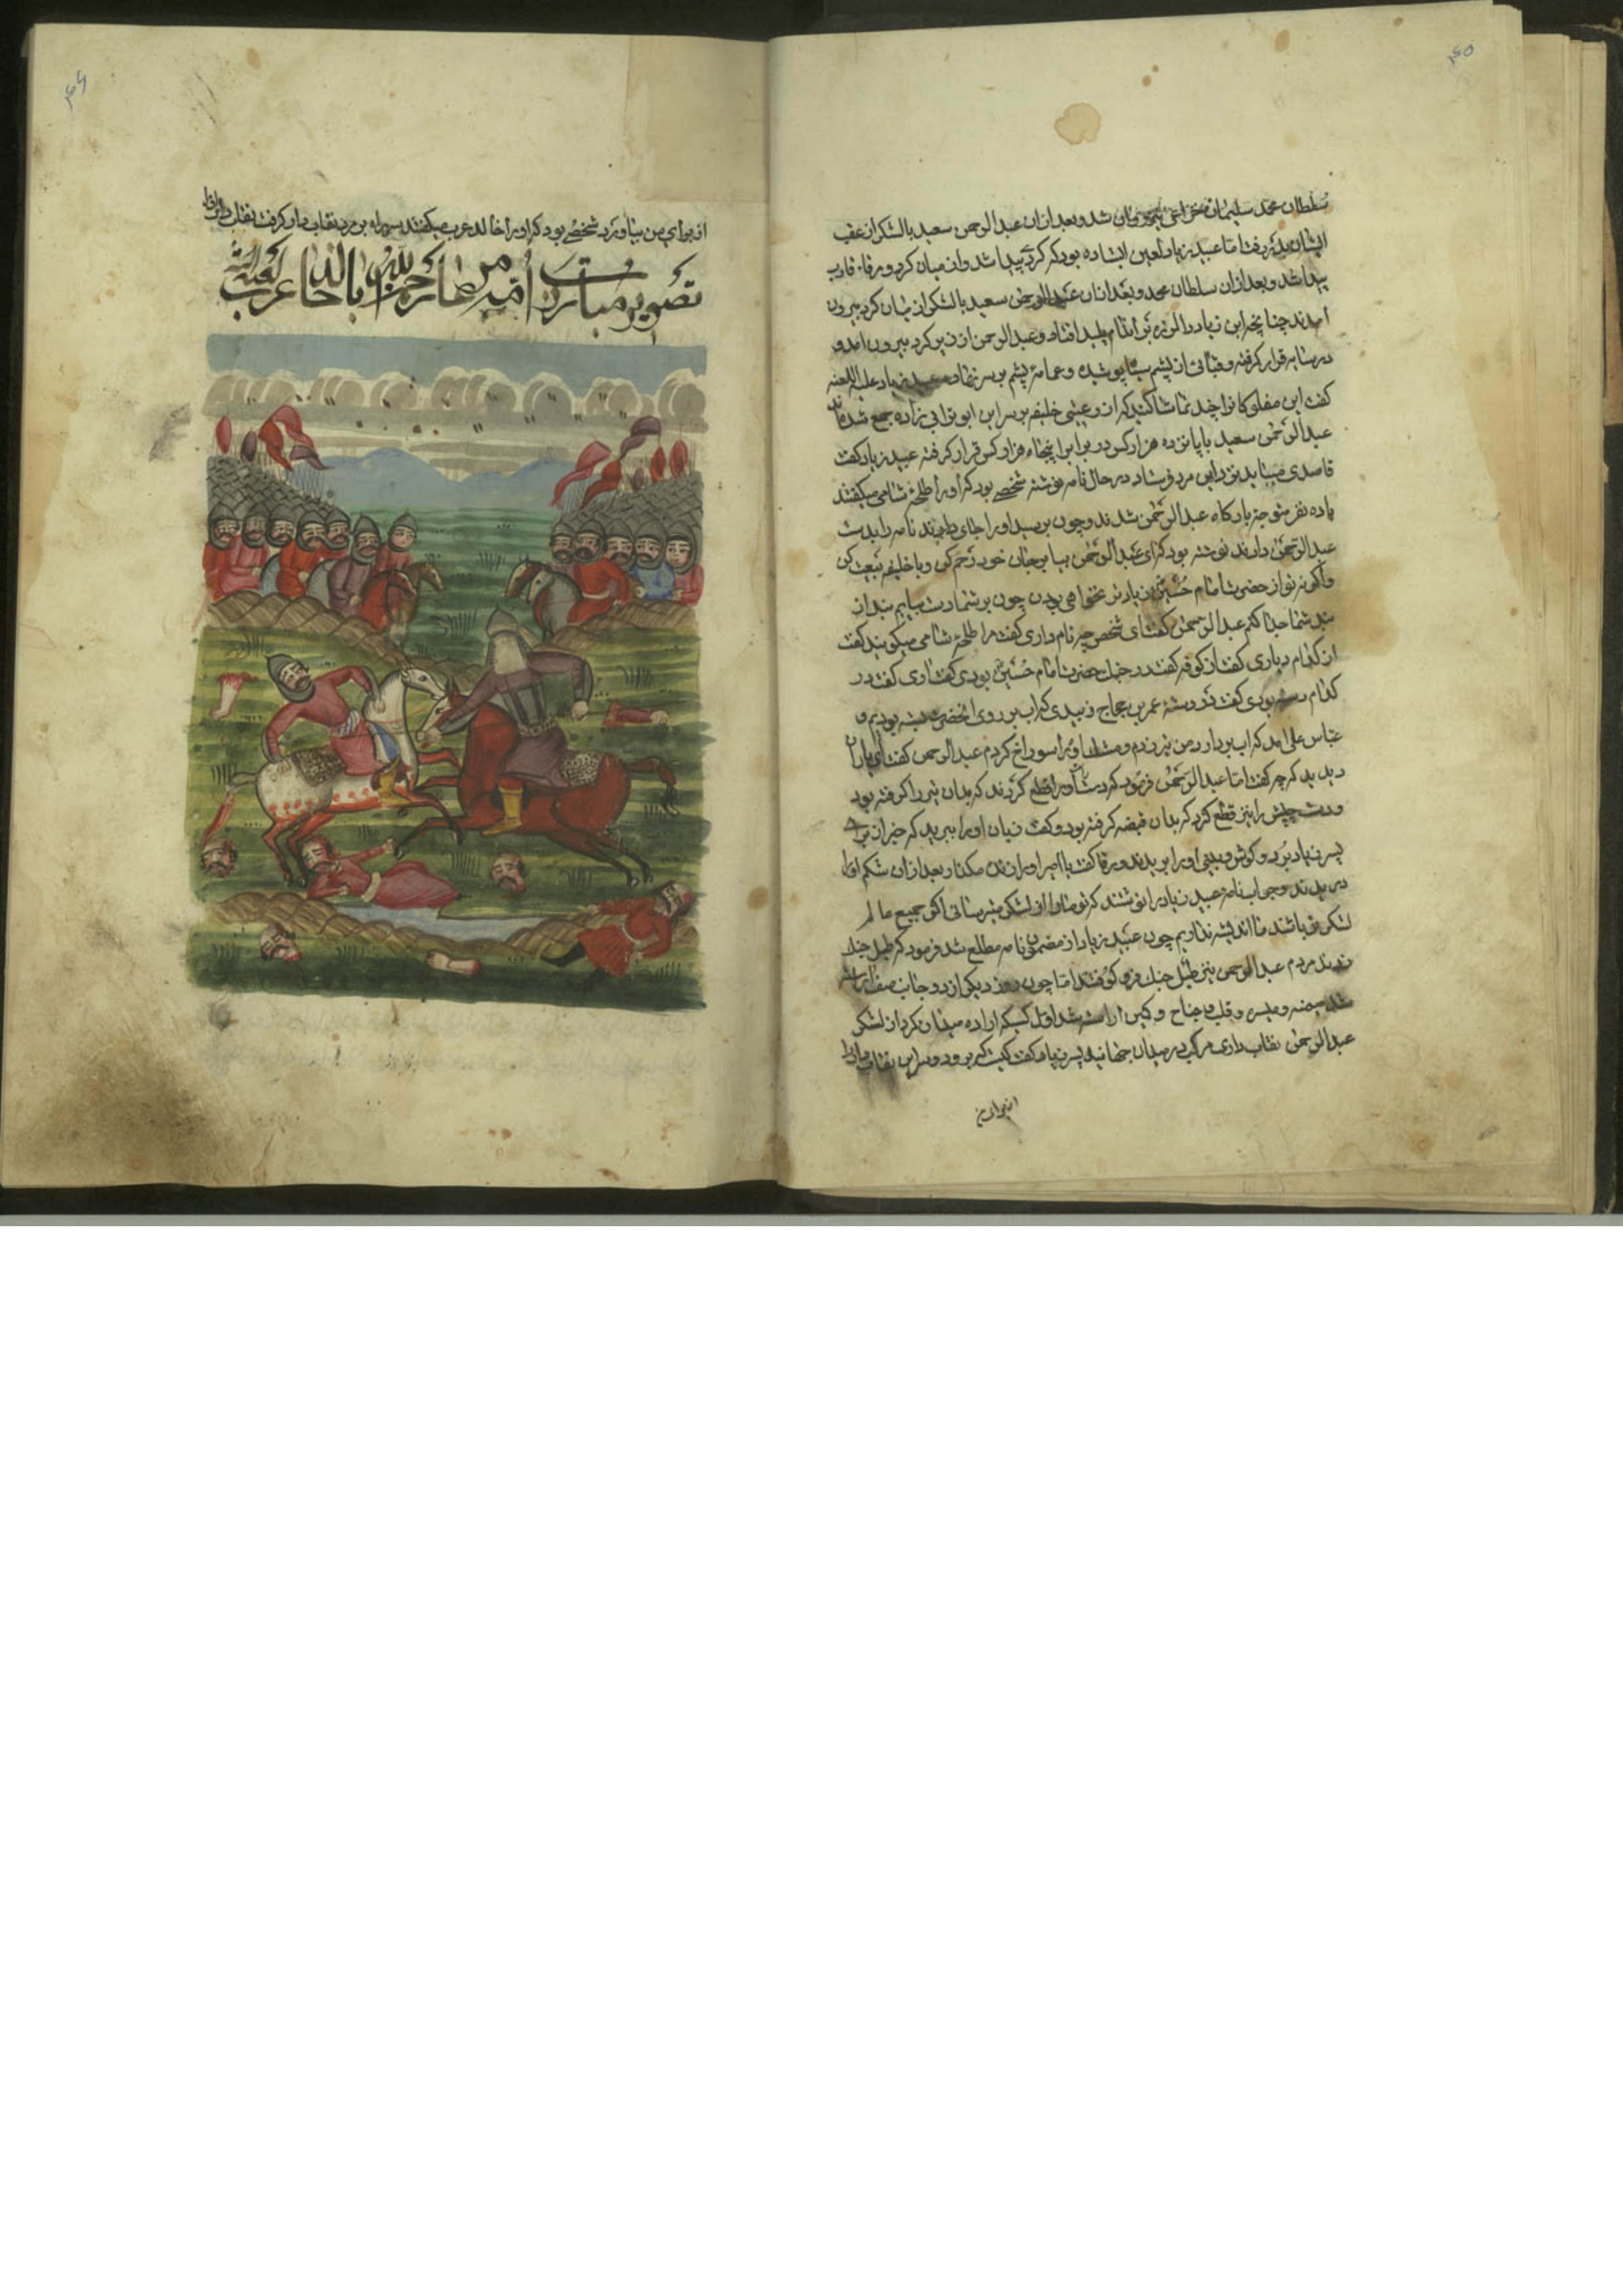 ۴۵
سلطان محمد سلیمان شد و بعد ازان عبدالرحمن سعید با لشکر از عقب
ایشان اما عبید زیاد لعین ایستاده بود که کردی پیدا شد و از میان کرد ورقاء قارب
پیدا شد و بعد ازان سلطان محمد و بعد ازان عبدالرحمن سعید با لشکر از میان کرد بیرون
امدند چنانچه ابن زیاد را لرزه بر اندام پلید افتاد و عبدالرحمن از زیر کرد بیرون امد و
در سایه قرار کرفته و قبائی از پشم سیاه پوشیده و عمامه پشم بر سر نهاده عبید زیاد علیه اللعنه
کفت این مفلوکانرا چند تماشا کنید که از دعیتی خلیفه بر سر این ابو ترابی زاده جمع شده اند
عبدالرحمن سعید با پانزده هزار کس در برابر پنجاه هزار کس قرار کرفته عبید زیاد کفت
قاصدی میباید نزد این مرد فرستاد در حال نامه نوشته شخصی بود که اورا طلحهٔ شامی میکفتند
با ده نفر متوجه بارکاه عبدالرحمن شدند و چون برسید اورا جای دادند نامه را بدست
عبدالرحمن دادند نوشته بود که ای عبدالرحمن بیا بر جان خود رحم کن و با خلیفه بیعت کن
و اکر نه تو از حضرت امام حسین زیادتر نخواهی بودن چون بر شما دست یابم بند از
بند شما جدا کنم عبدالرحمن کفت ای شخص چه نام داری کفت مرا طلحهٔ شامی میکویند کفت
از کدام دیاری کفت از کوفه کفت در جنک حضرت امام حسین بودی کفت اری کفت در
کدام دسته بودی کفت در دسته عمر بن حجاج زبیدی که اب بر روی انحضرت بسته بودیم و
عباس علی امد که اب بردارد من تیر زدم و مشک اورا سوراخ کردم عبدالرحمن کفت ای یاران
دیدید که چه کفت اما عبدالرحمن فرمود که دست راست اورا قطع کردند که بدان تیر را کرفته بود
و دست چپش را نیز قطع کرد که بدان قبضه کرفته بود و کفت زبان اورا ببرید که خبر از برای
پسر زیاد نبرد و کوش و بینی اورا بریدند ورقا کفت یا امیر اورا زنده مکذار بعد ازان شکم اورا
دریدند و جواب نامه عبید زیاد را نوشتند که تو مارا از لشکر میترسانی اکر جمیع عالم
لشکر تو باشند ما اندیشه نداریم چون عبید زیاد از مضمون نامه مطلع شد فرمود که طبل جنک
زدند مردم عبدالرحمن نیز طبل جنک فرو کوفتند اما چون روز دیکر از دو جانب صف اراسته
شد میمنه و میسره و قلب و جناح و کمین اراسته شد اول کسیکه اراده میدان کرد از لشکر
عبدالرحمن نقاب داری مرکب در میدان جهانید پسر زیاد کفت کیست که برود و سر این نقاب دار را
از برای
۴۶
از برای من بیاورد شخصی بود که اورا خالد عرب میکفتند سر راه بر مرد نقاب دار کرفت نقاب دار اورا
تصویر مبارزت امیر عبدالرحمن با خالد عرب لعنة الله